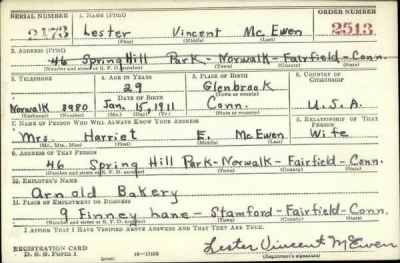 SERIAL NUMBER 1. NAME (Print) ORDER NUMBER
2173 Lester Vincent Mc Ewen 2513
(First) (Middle) (Last)
2. ADDRESS (Print)
46 Spring Hill Park-Norwalk-Fairfield-Conn.
(Number and street or R. F. D. number) (Town) (County) (State)
3. TELEPHONE 4. AGE IN YEARS 5. PLACE OF BIRTH 6. COUNTRY OF CITIZENSHIP
29 Glenbrook
DATE OF BIRTH (Town or county)
Norwalk 8980 Jan. 15, 1911 Conn. U.S.A.
(Exchange) (Number) (Mo.) (Day) (Yr.) (State or country)
7. NAME OF PERSON WHO WILL ALWAYS KNOW YOUR ADDRESS 8. RELATIONSHIP OF THAT PERSON
Mrs. Harriet E. Mc Ewen Wife
(Mr., Mrs., Miss) (First) (Middle) (Last)
9. ADDRESS OF THAT PERSON
46 Spring Hill Park-Norwalk-Fairfield-Conn.
(Number and street or R. F. D. number) (Town) (County) (State)
10. EMPLOYER'S NAME
Arnold Bakery
11. PLACE OF EMPLOYMENT OR BUSINESS
9 Finney Lane-Stamford-Fairfield-Conn.
(Number and street or R. F. D. number) (Town) (County) (State)
I AFFIRM THAT I HAVE VERIFIED ABOVE ANSWERS AND THAT THEY ARE TRUE.
REGISTRATION CARD
D. S. S. Form 1 (over) Lester Vincent McEwen
(Registrant's signature)